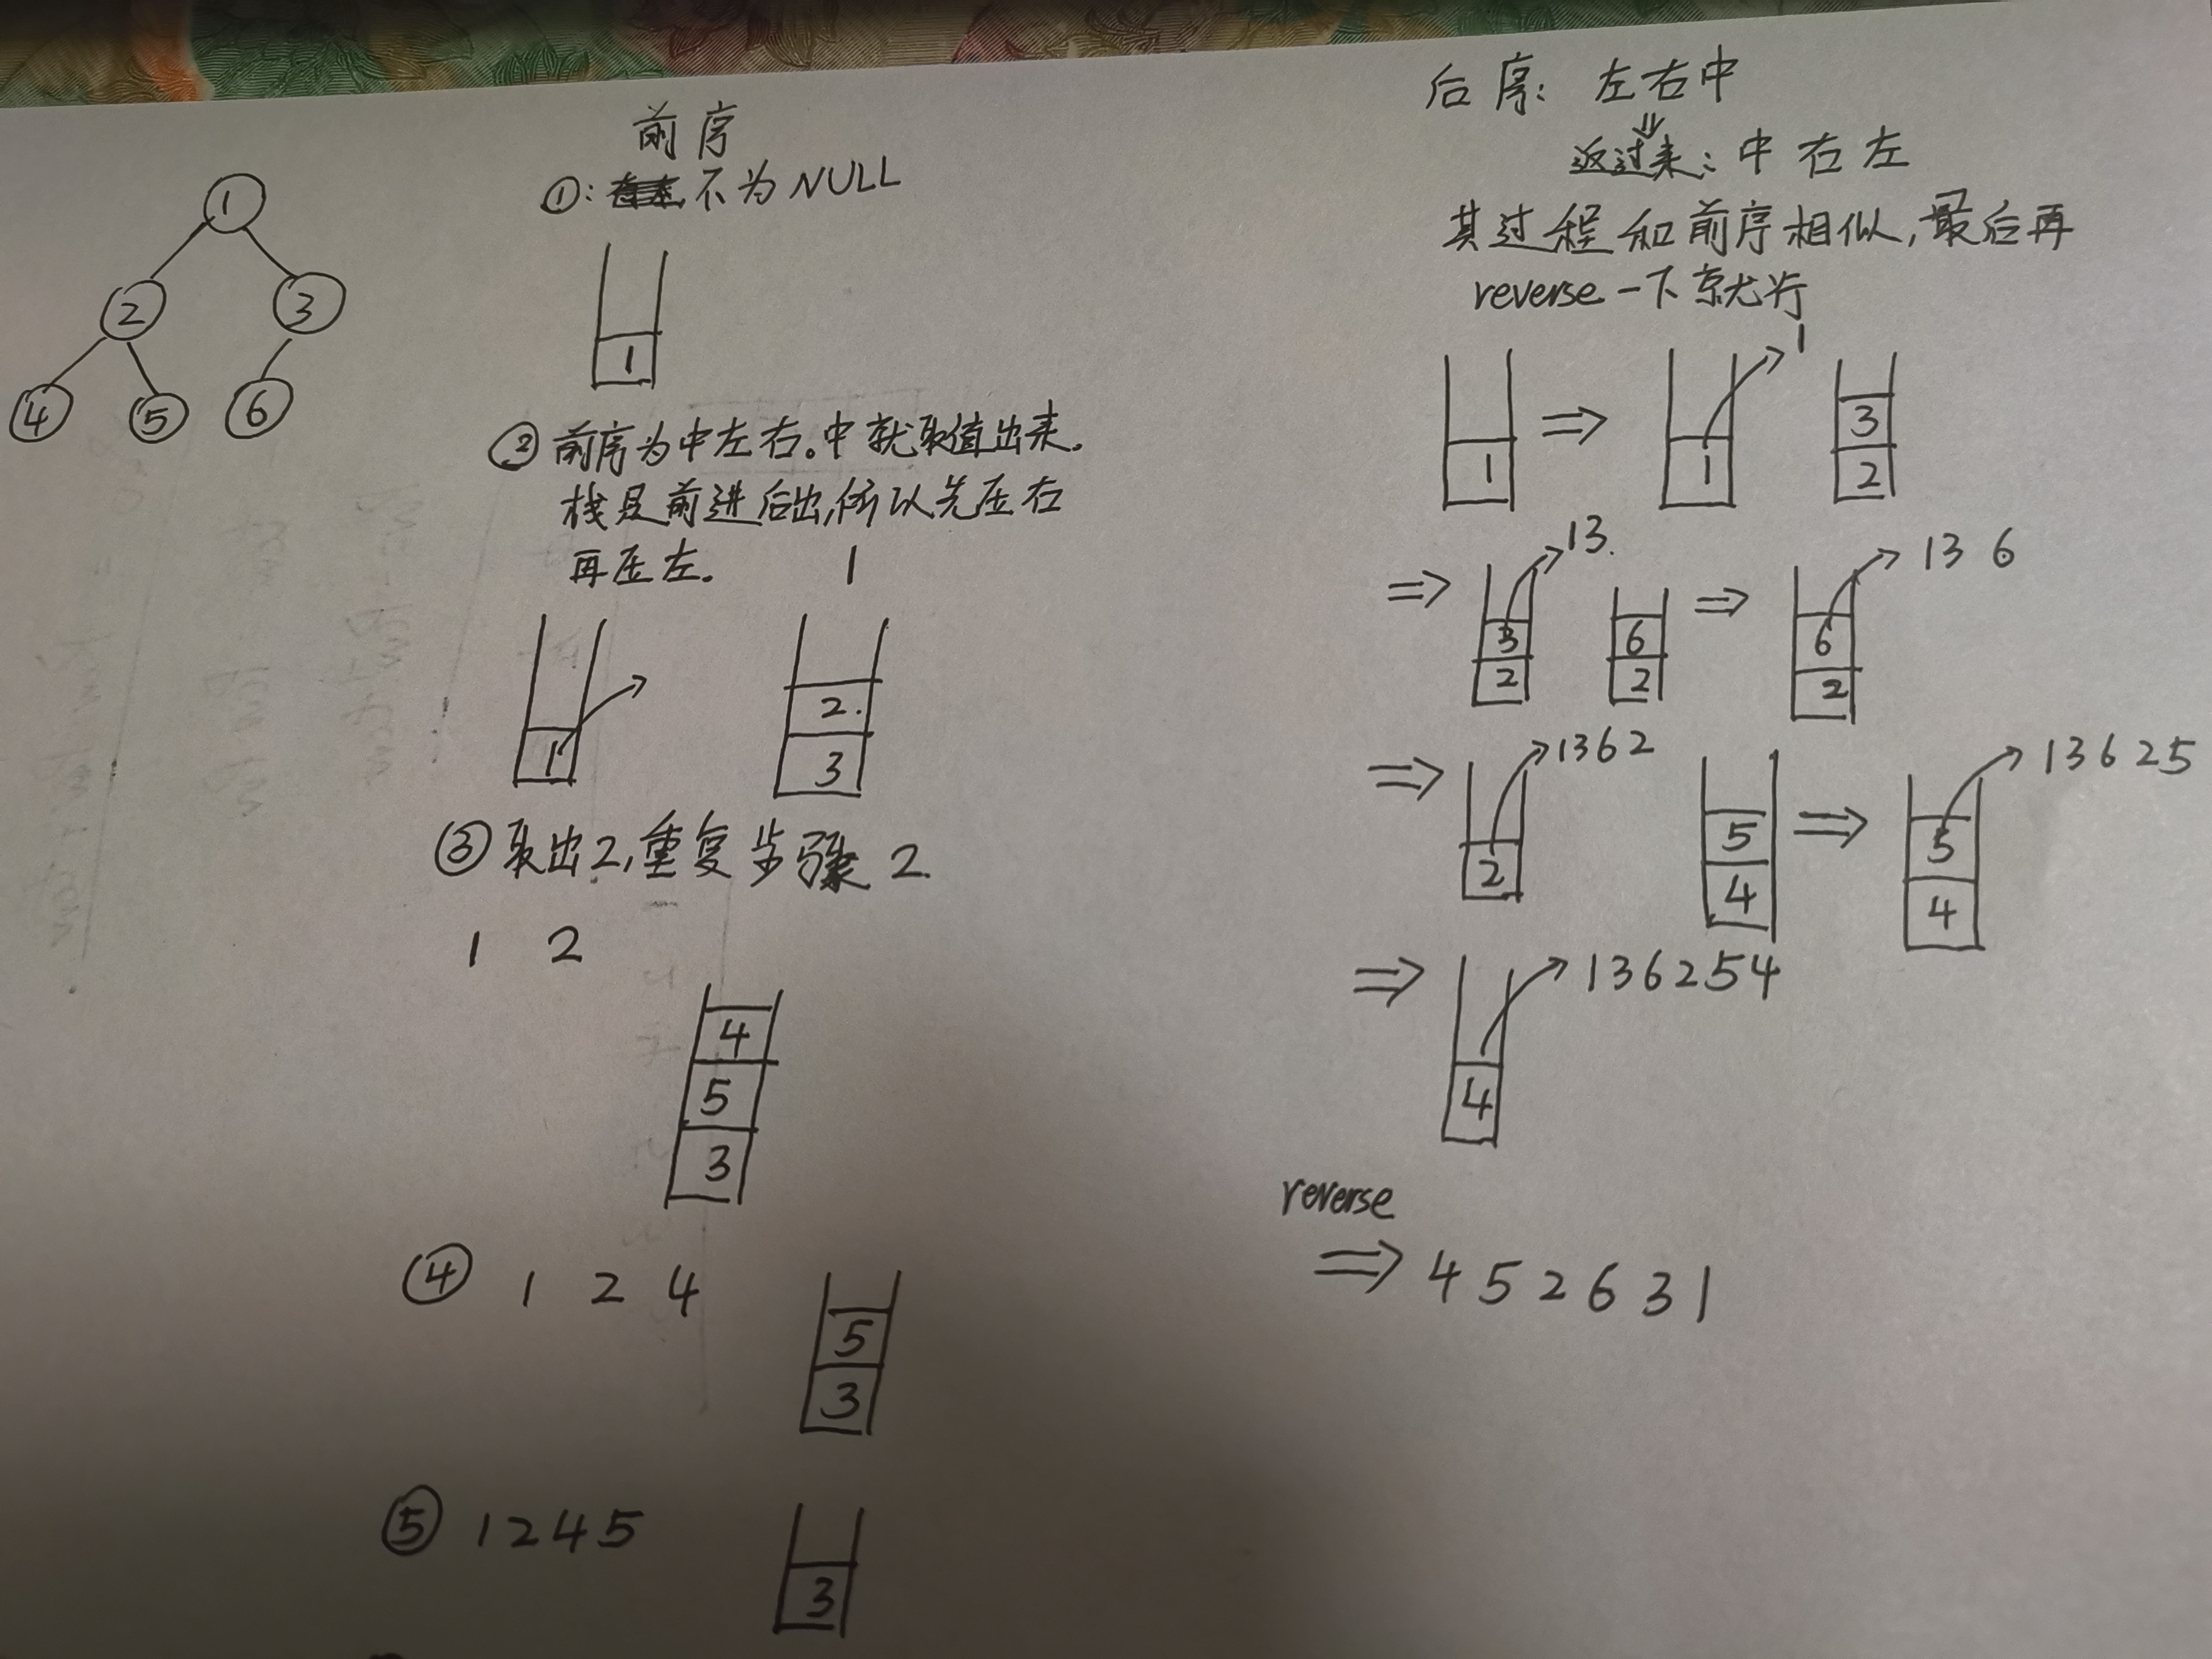 前序
①: 不为NULL
1
2 3
4 5 6
1
② 前序为中左右。中就取值出来.
栈是前进后出,所以先压右
再压左. 1
1
2.
3
③ 取出2,重复步骤2.
1 2
4
5
3
④ 1 2 4
5
3
⑤ 1245
3
后序: 左右中
⇓
返过来: 中右左
其过程和前序相似,最后再
reverse一下就行
1 ⇒ 1 → 1
3
2
⇒ → 13.
3
2
6
2
⇒ → 136
6
2
⇒ → 1362
2
5
4
⇒ → 13625
5
4
⇒ → 136254
4
reverse
⇒ 452631